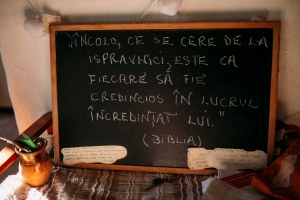 "ÎNCOLO, CE SE CERE DE LA
ISPRAVNICI, ESTE CA
FIECARE SĂ FIE
CREDINCIOS ÎN LUCRUL
ÎNCREDINȚAT LUI."
(BIBLIA)